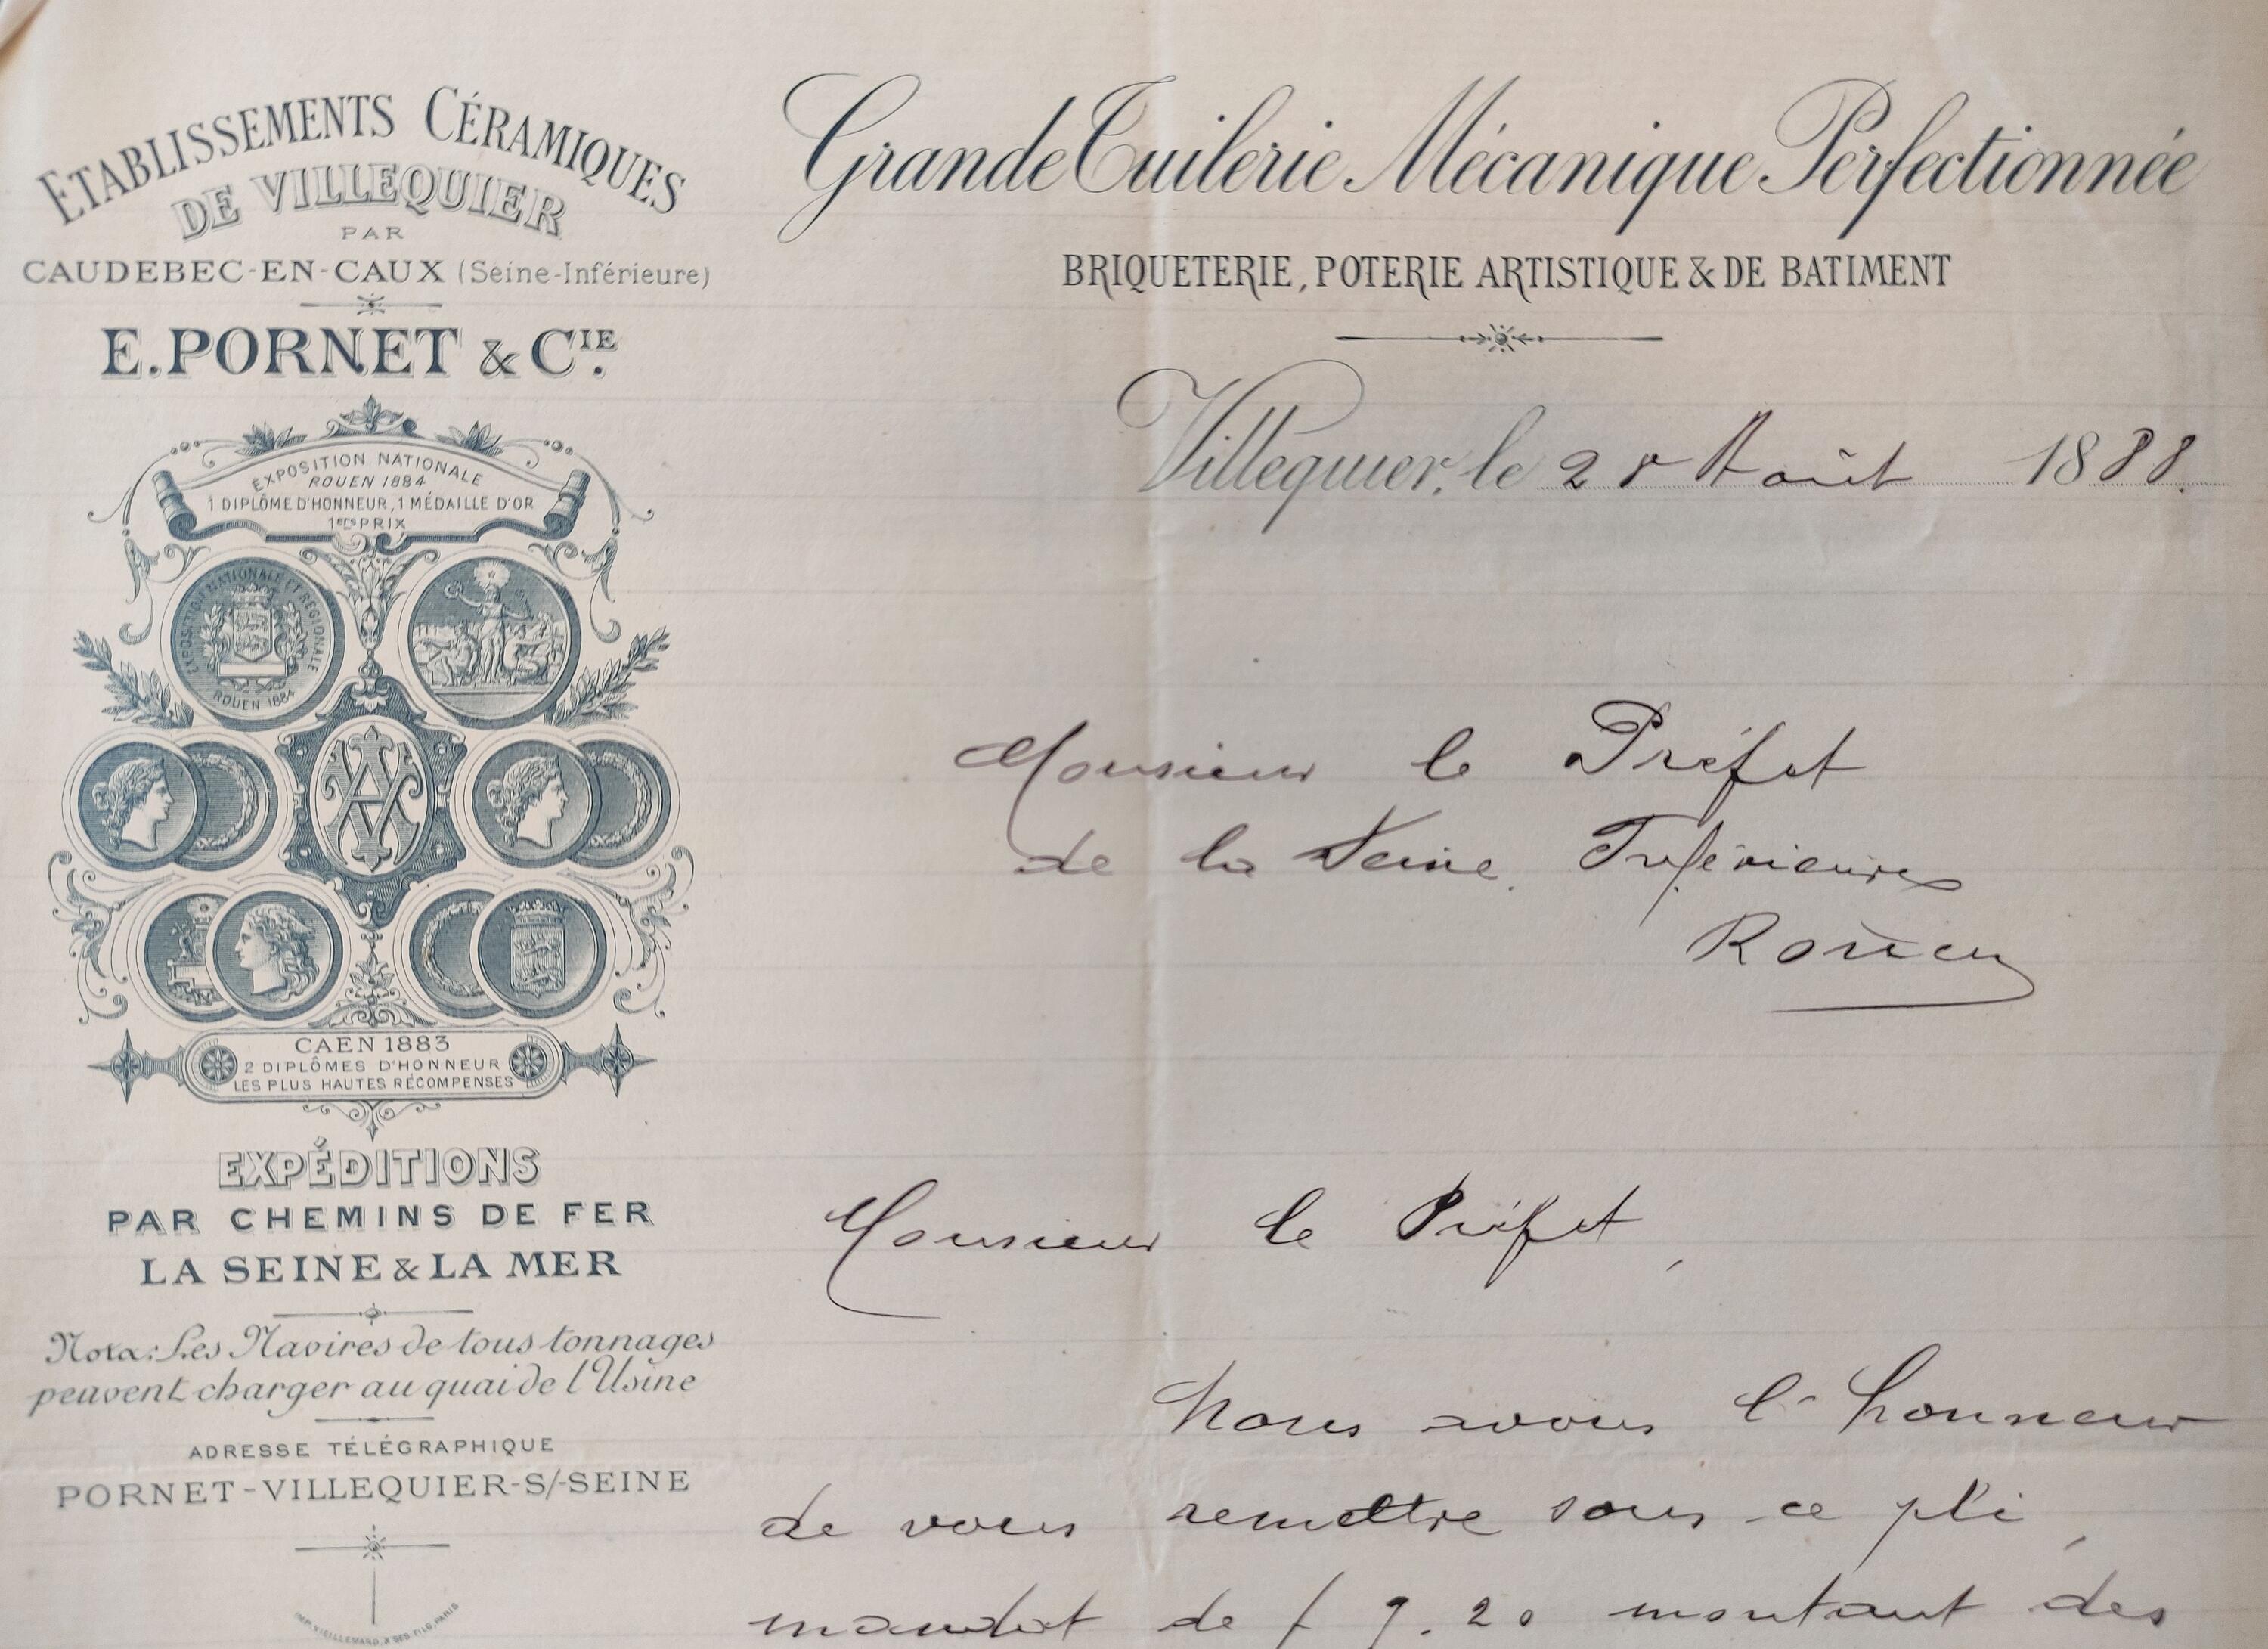 ETABLISSEMENTS CÉRAMIQUES
DE VILLEQUIER
PAR
CAUDEBEC-EN-CAUX (Seine-Inférieure)
E. PORNET & CIE.
EXPOSITION NATIONALE
ROUEN 1884
1 DIPLÔME D'HONNEUR, 1 MÉDAILLE D'OR
1ers PRIX
EXPOSITION NATIONALE ET REGIONALE
ROUEN 1884
CAEN 1883
2 DIPLÔMES D'HONNEUR
LES PLUS HAUTES RÉCOMPENSES
EXPÉDITIONS
PAR CHEMINS DE FER
LA SEINE & LA MER
Nota: Les Navires de tous tonnages
peuvent charger au quai de l'Usine
ADRESSE TÉLÉGRAPHIQUE
PORNET-VILLEQUIER-S/-SEINE
IMP. VIEILLEMARD & SES FILS, PARIS
Grande Tuilerie Mécanique Perfectionnée
BRIQUETERIE, POTERIE ARTISTIQUE & DE BATIMENT
Villequier, le 28 Août 1888.
Monsieur le Préfet
de la Seine Inférieure
Rouen
Monsieur le Préfet,
Nous avons l'honneur
de vous remettre sous ce pli,
mandat de f 9.20 montant des